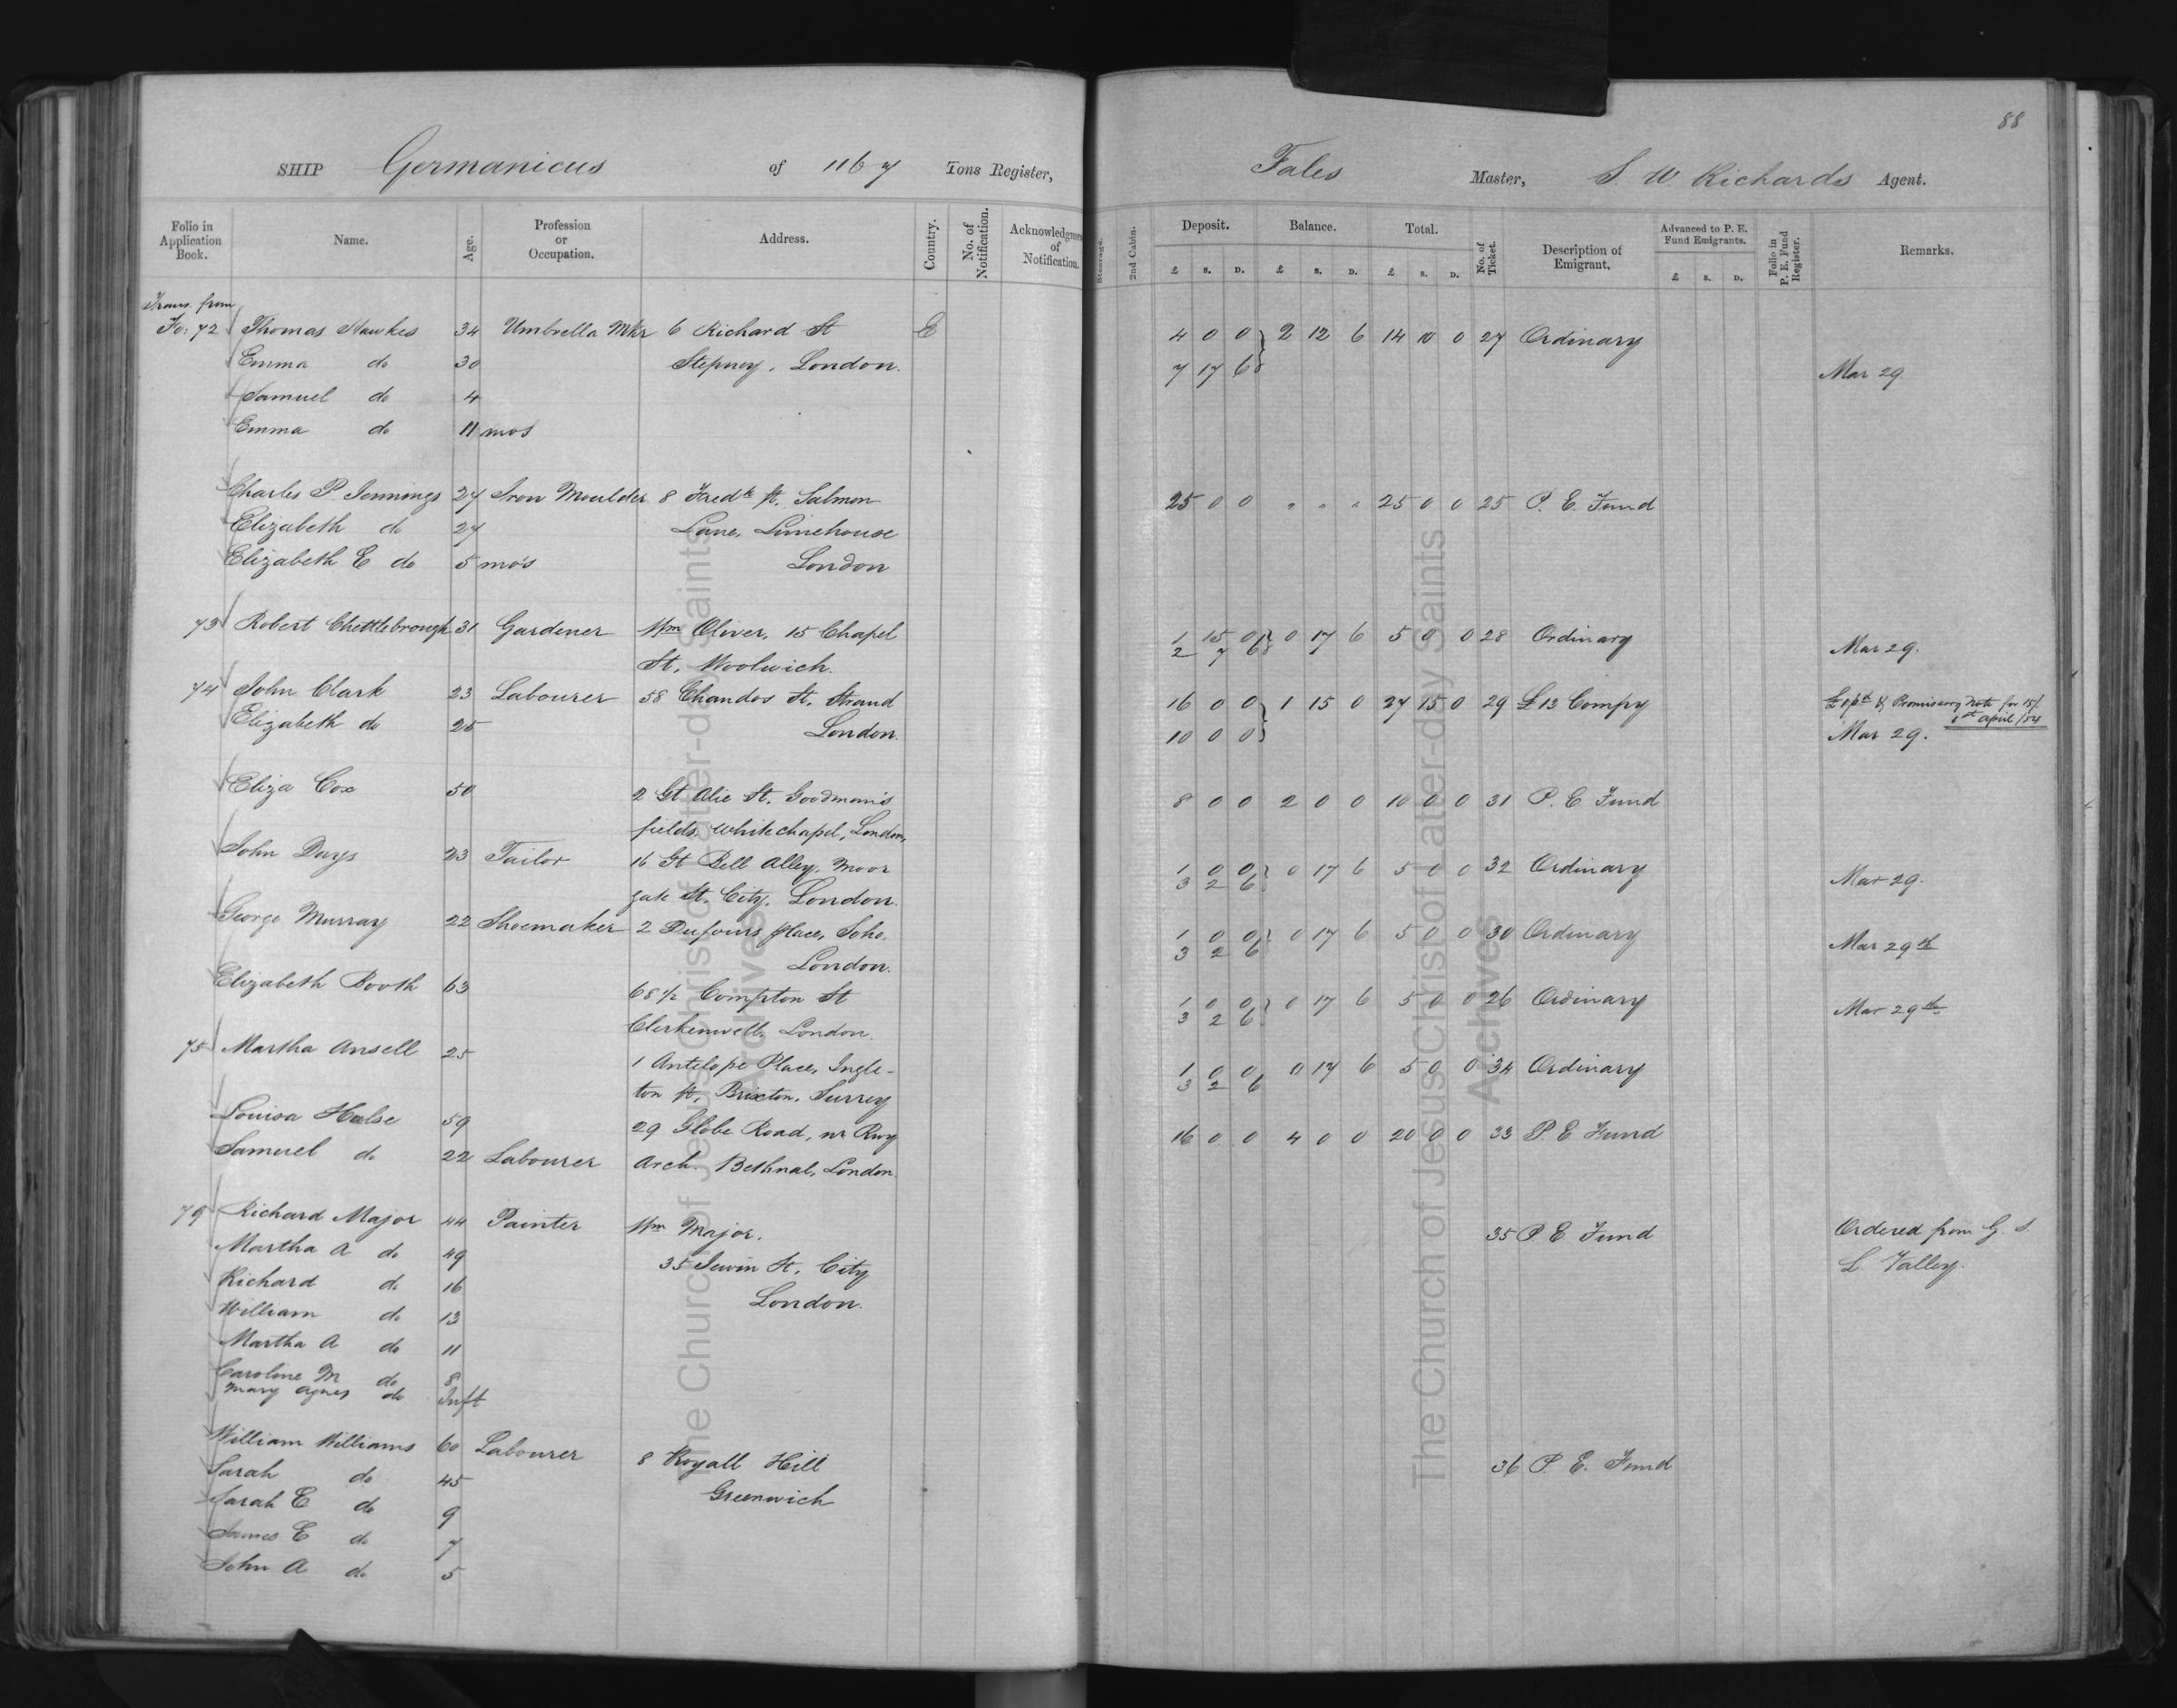 88
SHIP Germanicus of 1167 Tons Register, Fales Master, S. W Richards Agent.
Folio in Application Book. Name. Age. Profession or Occupation. Address. Country. No. of Notification. Acknowledgmen of Notification. Steerage. 2nd Cabin. Deposit. £ s. D. Balance. £ s. D. Total. £ s. D. No. of Ticket. Description of Emigrant. Advanced to P. E. Fund Emigrants. £ s. D. Folio in P. E. Fund Register. Remarks.
Trans. from
Fo: 72 Thomas Hawkes 34 Umbrella Mkr 6 Richard St E 4 0 0 2 12 6 14 10 0 27 Ordinary
Emma do 30 Stepney, London. 7 17 6 Mar 29.
Samuel do 4
Emma do 11 mos
Charles P. Jennings 27 Iron Moulder 8 Fredk St. Salmon 25 0 0 " " " 25 0 0 25 P. E. Fund
Elizabeth do 27 Lane, Limehouse
Elizabeth E do 5 mos London
73 Robert Chettlebrough 31 Gardener Wm Oliver, 15 Chapel 1 15 0 0 17 6 5 0 0 28 Ordinary
St, Woolwich. 2 7 6 Mar 29.
74 John Clark 23 Labourer 58 Chandos St, Strand 16 0 0 1 15 0 27 15 0 29 £13 Compy Promissory Note for 15/
1st april/54
Elizabeth do 25 London. 10 0 0 Mar 29.
Eliza Cox 50 2 Gt Alie St. Goodman's 8 0 0 2 0 0 10 0 0 31 P. E Fund
fields, Whitechapel, London,
John Days 23 Tailor 16 Gt Bell Alley, Moor 1 0 0 0 17 6 5 0 0 32 Ordinary
gate St. City, London. 3 2 6 Mar 29.
George Murray 22 Shoemaker 2 Dufours place, Soho. 1 0 0 0 17 6 5 0 0 30 Ordinary
London. 3 2 6 Mar 29th
Elizabeth Booth 63 68½ Compton St 1 0 0 0 17 6 5 0 0 26 Ordinary
Clerkenwell, London. 3 2 6 Mar 29th
75 Martha Ansell 25 1 Antelope Place, Ingle- 1 0 0 0 17 6 5 0 0 34 Ordinary
ton St, Brixton, Surrey 3 2 6
Louisa Halse 59 29 Globe Road, nr Rwy 16 0 0 4 0 0 20 0 0 33 P. E. Fund
Samuel do 22 Labourer Arch. Bethnal, London
79 Richard Major 44 Painter Wm Major. 35 P. E Fund Ordered from G. S
Martha A do 49 35 Jewin St, City L. Valley.
Richard do 16 London.
William do 13
Martha A do 11
Caroline M do 8
Mary Agnes do Inft
William Williams 60 Labourer 8 Royall Hill 36 P. E. Fund
Sarah do 45 Greenwich
Sarah E do 9
James E do 7
John A do 5
The Church of Jesus Christ of Latter-day Saints
Archives
The Church of Jesus Christ of Latter-day Saints
Archives